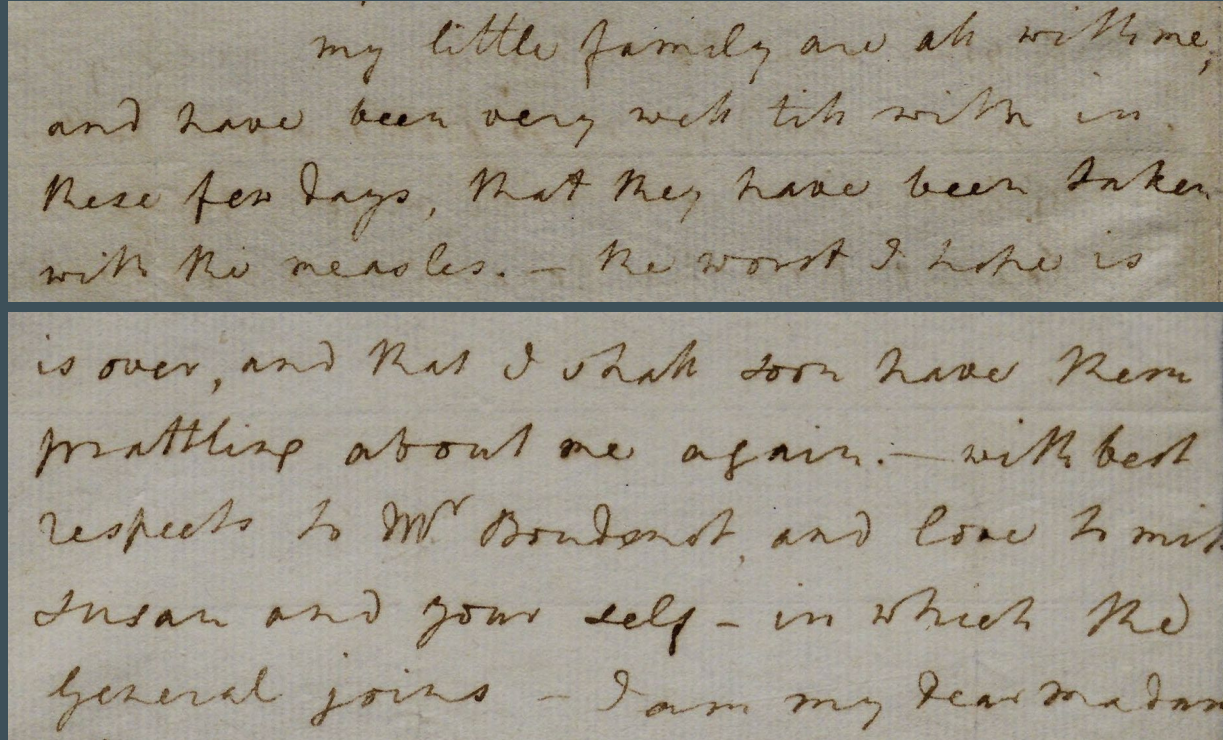 my little family are all with me,
and have been very well till with in
these few days, that they have been taken
with the measles. — the worst I hope is
is over, and that I shall soon have them
prattling about me again. — with best
respects to Mr. Boudenot, and love to miss
susan and your self - in which the
General joins - I am my dear madam